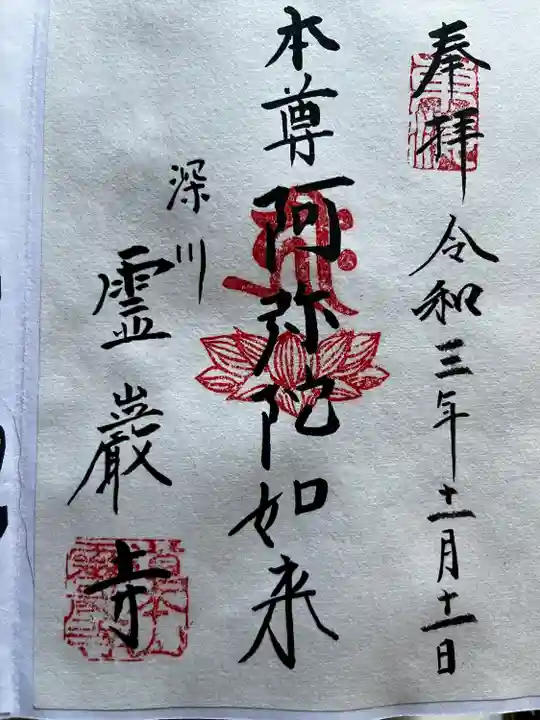 奉拝 令和三年十一月十一日
本尊 阿弥陀如来
深川
霊巌寺